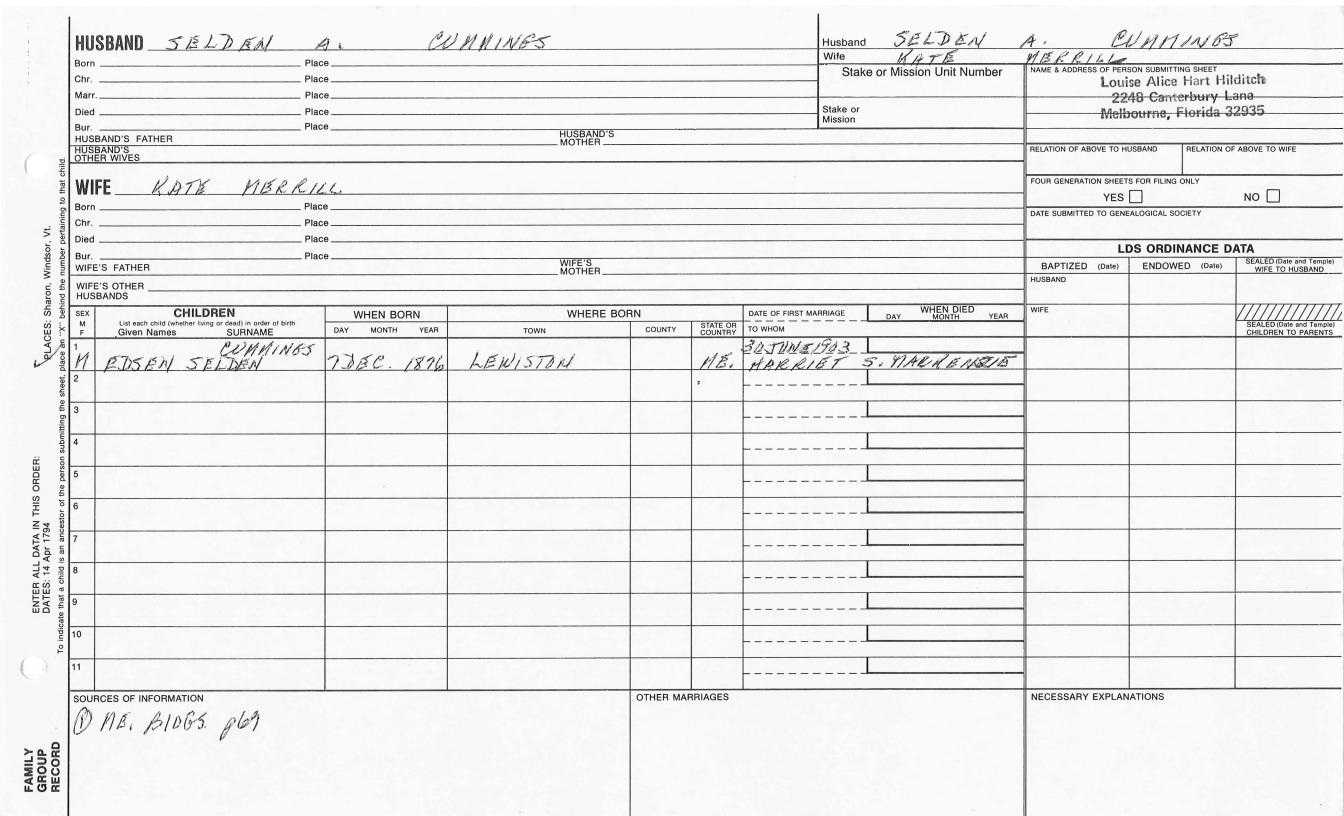 HUSBAND SELDEN A. CUMMINGS
Born Place
Chr. Place
Marr. Place
Died Place
Bur. Place
HUSBAND'S FATHER HUSBAND'S MOTHER
HUSBAND'S OTHER WIVES
Husband SELDEN A. CUMMINGS
Wife KATE MERRILL
Stake or Mission Unit Number
Stake or Mission
NAME & ADDRESS OF PERSON SUBMITTING SHEET
Louise Alice Hart Hilditch
2248 Canterbury Lane
Melbourne, Florida 32935
RELATION OF ABOVE TO HUSBAND RELATION OF ABOVE TO WIFE
FOUR GENERATION SHEETS FOR FILING ONLY
YES NO
DATE SUBMITTED TO GENEALOGICAL SOCIETY
WIFE KATE MERRILL
Born Place
Chr. Place
Died Place
Bur. Place
WIFE'S FATHER WIFE'S MOTHER
WIFE'S OTHER HUSBANDS
LDS ORDINANCE DATA
BAPTIZED (Date) ENDOWED (Date) SEALED (Date and Temple) WIFE TO HUSBAND
HUSBAND
WIFE
SEALED (Date and Temple) CHILDREN TO PARENTS
SEX M F
CHILDREN
List each child (whether living or dead) in order of birth
Given Names SURNAME
WHEN BORN
DAY MONTH YEAR
WHERE BORN
TOWN COUNTY STATE OR COUNTRY
DATE OF FIRST MARRIAGE
TO WHOM
WHEN DIED
DAY MONTH YEAR
1 CUMMINGS 30 JUNE 1903
M EDSEN SELDEN 7 DEC. 1876 LEWISTON ME. HARRIET S.
2
3
4
5
6
7
8
9
10
11
SOURCES OF INFORMATION
① ME. BIOGS. p69
OTHER MARRIAGES
NECESSARY EXPLANATIONS
PLACES: Sharon, Windsor, Vt.
ENTER ALL DATA IN THIS ORDER:
DATES: 14 Apr 1794
To indicate that a child is an ancestor of the person submitting the sheet, place an "X" behind the number pertaining to that child.
FAMILY
GROUP
RECORD